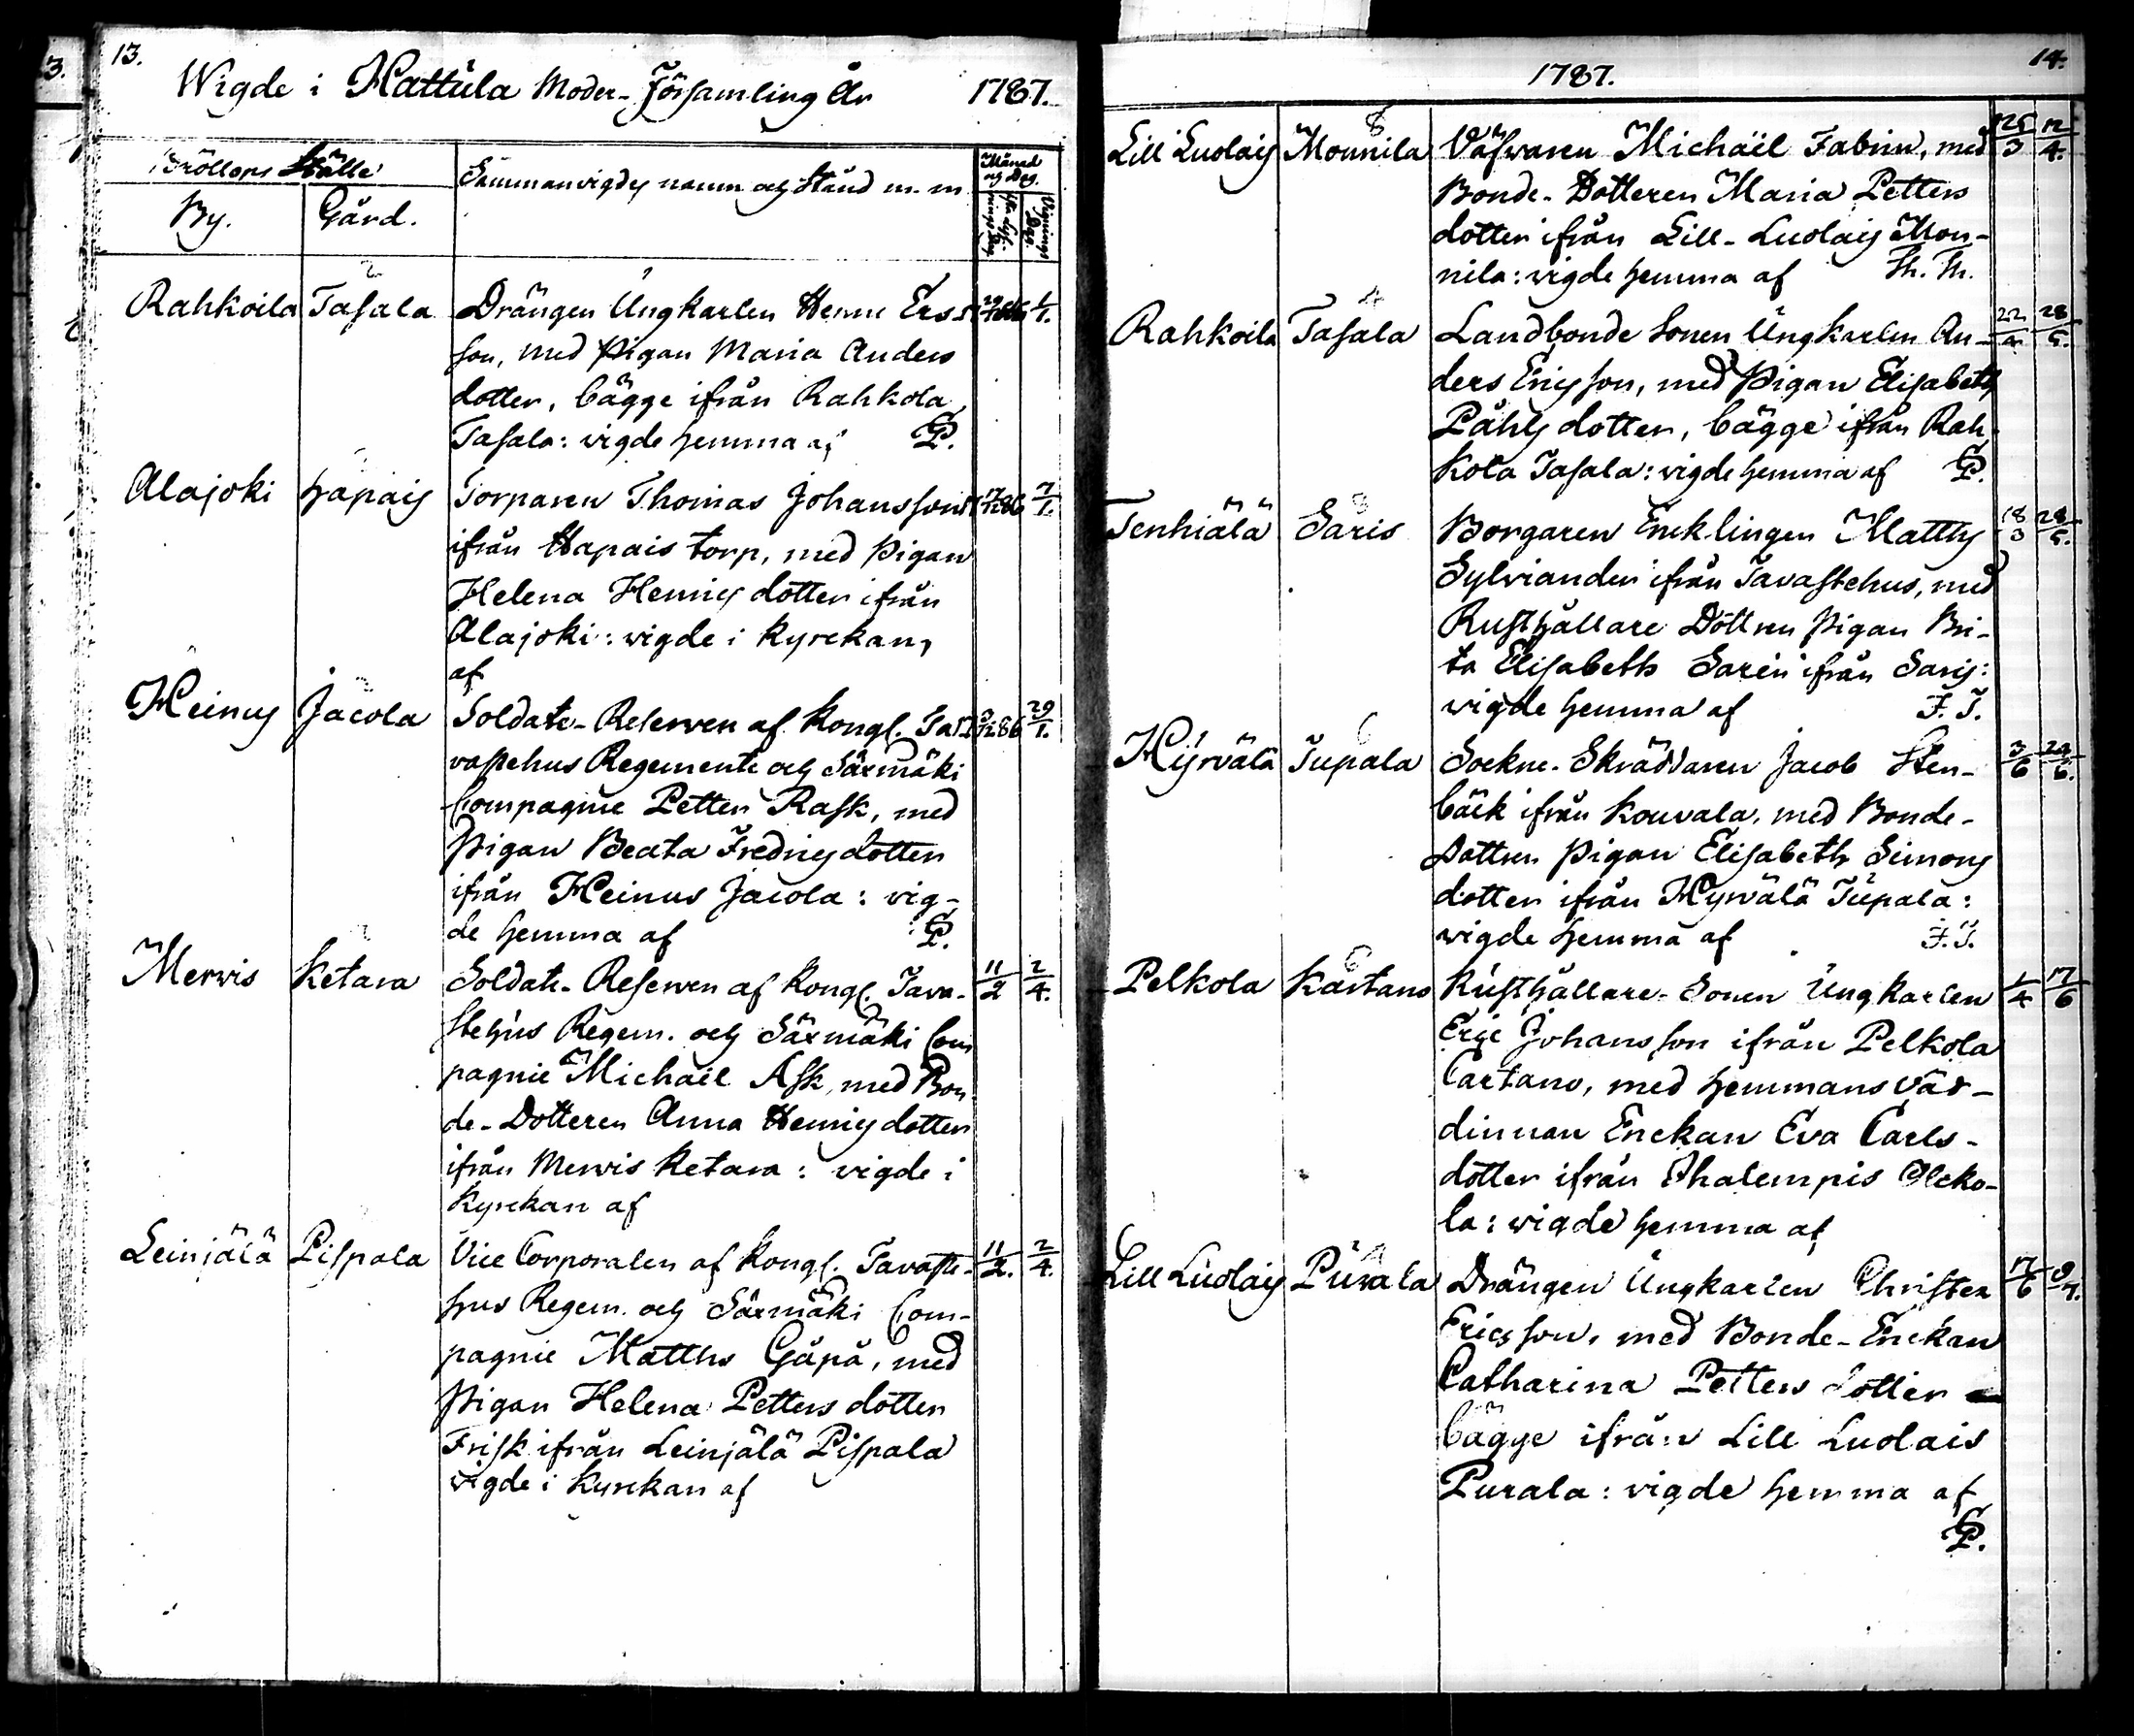 3.
13.
Wigde i Hattula Moder-Församling År 1787.
Bröllops Ställe
Sammanvigdes namn och Stånd m. m.
Månad och Dag.
By. Gård.
Vignings Dag.
Rahkoila Tasala Drängen Ungkarlen Henric Ers- 1/1.
son, med Pigan Maria Anders
dotter, bägge ifrån Rahkola
Tasala: vigde hemma af GP.
Alajoki Hapais Torparen Thomas Johansson 7/1.
ifrån Hapais torp, med Pigan
Helena Henrics dotter ifrån
Alajoki: vigde i Kyrckan,
af
Heinus Jacola Soldats-Reserven af Kongl. Ta- 29/1.
vastehus Regemente och Säxmäki
Compagnie Petter Rask, med
Pigan Beata Fredrics dotter
ifrån Heinus Jacola: vig-
de hemma af GP.
Merwis Ketara Soldats-Reserven af Kongl. Tava- 11/2 2/4.
stehus Regem. och Säxmäki Com
pagnie Michaël Ask, med Bon
de-Dotteren Anna Henrics dotter
ifrån Merwis Ketara: vigde i
Kyrckan af
Leinjälä Pispala Vice Corporalen af Kongl. Tavaste- 11/2. 2/4.
hus Regem. och Säxmäki Com-
pagnie Matths Gäpä, med
Pigan Helena Petters dotter
Frisk ifrån Leinjälä Pispala
vigde i Kyrckan af
14.
1787.
8
Lill Luolais Mounila Väfvaren Michaël Fabrin, med 25/3 12/4.
Bonde-Dotteren Maria Petters
dotter ifrån Lill-Luolais Mou-
nila: vigde hemma af Th. Th.
4
Rahkoila Tasala Landbonde Sonen Ungkarlen An- 22/4 28/5.
ders Ericsson, med Pigan Elisabeth
Påhls dotter, bägge ifrån Rah
kola Tasala: vigde hemma af GP.
Tenhiälä Saris Borgaren Encklingen Matths 18/3 28/5.
Sylviander ifrån Tavastehus, med
Rusthållare Dottren Pigan Bri-
ta Elisabeth Sarin ifrån Saris:
vigde hemma af F. T.
6
Hyrvälä Tupala Sockne-Skräddaren Jacob Sten- 3/6 24/6.
bäck ifrån Kouvala, med Bonde-
Dottren Pigan Elisabeth Simons
dotter ifrån Hyrvälä Tupala:
vigde hemma af F. T.
6
Pelkola Kartano Rusthållare-Sonen Ungkarlen 1/4 17/6
Eric Johansson ifrån Pelkola
Cartano, med Hemmans Vär-
dinnan Enckan Eva Carls-
dotter ifrån Ihalempis Olcko-
la: vigde hemma af
4
Lill Luolais Purala Drängen Ungkarlen Christer 17/6 8/7.
Ericsson, med Bonde-Enckan
Catharina Petters dotter
bägge ifrån Lill Luolais
Purala: vigde hemma af
GP.